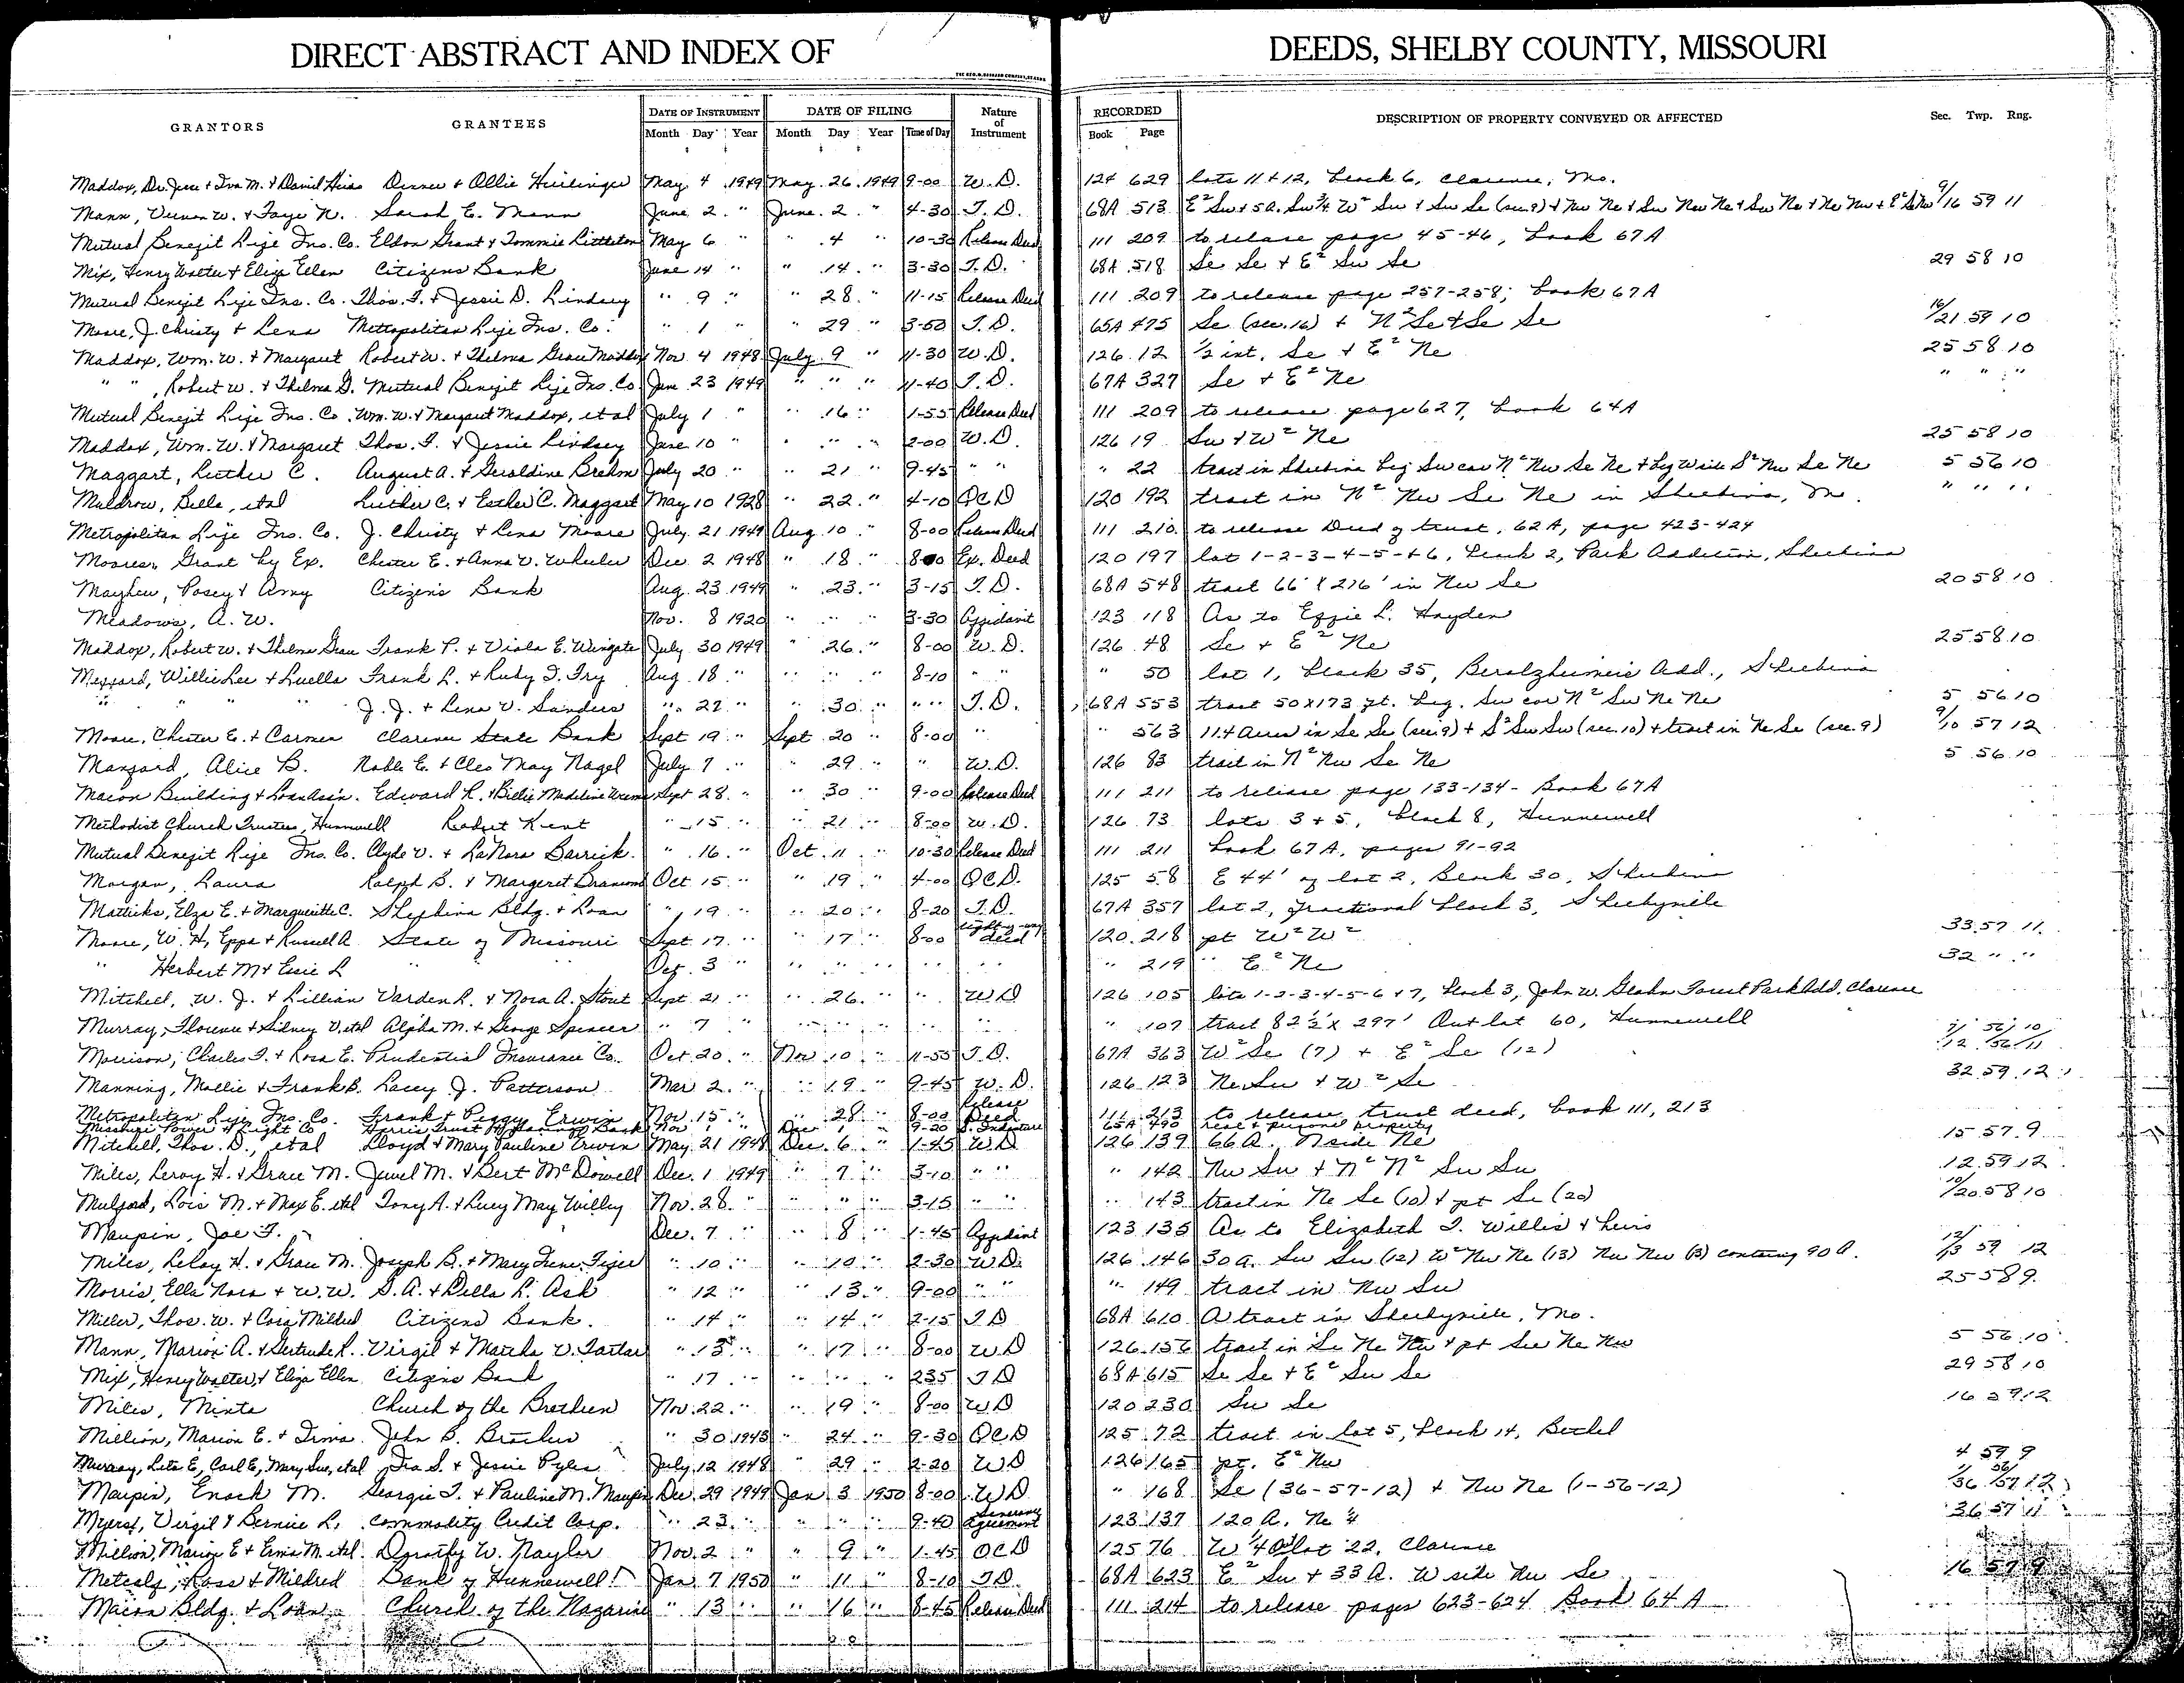 DIRECT ABSTRACT AND INDEX OF DEEDS, SHELBY COUNTY, MISSOURI
GRANTORS GRANTEES DATE OF INSTRUMENT DATE OF FILING Nature of Instrument RECORDED DESCRIPTION OF PROPERTY CONVEYED OR AFFECTED Sec. Twp. Rng.
Month Day Year Month Day Year Time of Day Book Page
Maddox, Dr. Jesse + Iva M. + David Denver + Ollie May 4 1949 May 26 1949 9-00 W.D. 124 629 lots 11 + 12, block 6, Clarence, Mo.
Mann, Vernon W. + Faye N. Sarah E. Mann June 2 " June 2 " 4-30 T.D. 68A 513 E² Sw + 5 a. Sw ¾ W² Sw + Sw Se (sec. 9) + Nw Ne + Sw Nw Ne + Sw Ne + Ne Nw + 9/16 59 11
Mutual Benefit Life Ins. Co. Eldon Grant + Tommie Littleton May 6 " " 4 " 10-30 Release Deed 111 209 to release page 45-46, book 67A
Mix, Henry Walter + Eliza Ellen Citizens Bank June 14 " " 14 " 3-30 T.D. 68A 518 Se Se + E² Sw Se 29 58 10
Mutual Benefit Life Ins. Co. Thos. F. + Jessie D. Lindsey " 9 " " 28 " 11-15 Release Deed 111 209 to release page 257-258, book 67A
Moore, J. Christy + Lena Metropolitan Life Ins. Co. " 1 " " 29 " 3-50 T.D. 65A 475 Se (sec. 16) + N² Se + Se Se 16/21 59 10
Maddox, Wm. W. + Margaret Robert W. + Thelma Grace Maddox Nov. 4 1948 July 9 " 11-30 W.D. 126 12 ½ int. Se + E² Ne 25 58 10
" " , Robert W. + Thelma G. Mutual Benefit Life Ins. Co June 23 1949 " " " 11-40 T.D. 67A 327 Se + E² Ne " " "
Mutual Benefit Life Ins. Co. Wm. W. + Margaret Maddox, et al July 1 " " 16 " 1-55 Release Deed 111 209 to release page 627, book 64A
Maddox, Wm. W. + Margaret Thos. F. + Jessie Lindsey June 10 " " " " 2-00 W.D. 126 19 Sw + W² Ne 25 58 10
Maggart, Luther C. August A. + Geraldine Brehm July 20 " " 21 " 9-45 " " " 22 tract in Shelbina beg Sw cor N² Nw Se Ne + beg W side S² Nw Se Ne 5 56 10
Muldrow, Belle, etal Luther C. + Esther C. Maggart May 10 1928 " 22 " 4-10 QCD 120 192 tract in N² Nw Se Ne in Shelbina, Mo. " " "
Metropolitan Life Ins. Co. J. Christy + Lena Moore July 21 1949 Aug. 10 " 8-00 Release Deed 111 210 to release Deed of trust, 62A, page 423-424
Grant by Ex. Chester E. + Anna V. Wheeler Dec 2 1948 " 18 " 8-00 Ex. Deed 120 197 lot 1-2-3-4-5-+6, block 2, Park Addition, Shelbina
Mayhew, Posey + Amy Citizens Bank Aug. 23 1949 " 23 " 3-15 T.D. 68A 548 tract 66' X 216' in Nw Se 20 58 10
Meadows, A. W. Nov. 8 1920 " " " 3-30 Affidavit 123 118 As to Effie L. Hayden
Maddox, Robert W. + Thelma Grace Frank P. + Viola E. Wingate July 30 1949 " 26 " 8-00 W.D. 126 48 Se + E² Ne 25 58 10
Willie Lee + Luella Frank L. + Ruby I. Fry Aug. 18 " " " " 8-10 " " " 50 lot 1, block 35, Berolzheimer's Add., Shelbina
" " " J. J. + Lena V. Sanders " 22 " " 30 " " " T.D. 68A 553 tract 50X173 ft. beg. Sw cor N² Sw Ne Ne 5 56 10
Moore, Chester E. + Carmen Clarence State Bank Sept 19 " Sept 20 " 8-00 " " 563 11.4 acres in Se Se (sec. 9) + S² Sw Sw (sec. 10) + tract in Ne Se (sec. 9) 9/10 57 12
Alice B. Noble E. + Cleo May Nagel July 7 " " 29 " " W.D. 126 83 tract in N² Nw Se Ne 5 56 10
Macon Building + Loan Assn. Edward R. + Billie Madeline Sept 28 " " 30 " 9-00 Release Deed 111 211 to release page 133-134 - Book 67A
Methodist Church Trustees, Hunnewell Robert Kent " 15 " " 21 " 8-00 W.D. 126 73 lots 3 + 5, block 8, Hunnewell
Mutual Benefit Life Ins. Co. Clyde V. + LaNora Barrick " 16 " Oct. 11 " 10-30 Release Deed 111 211 book 67A, pages 91-92
Morgan, Laura Ralph B. + Margeret Oct 15 " " 19 " 4-00 QCD. 125 58 E 44' of lot 2, Block 30, Shelbina
Matticks, Elza E. + Marguerite C. Shelbina Bldg. + Loan " 19 " " 20 " 8-20 T.D. 67A 357 lot 2, fractional block 3, Shelbyville
Moore, W. H., Eppa + Russell A. State of Missouri Sept 17 " " 17 " 8-00 Right of way deed 120 218 pt W² W² 33 57 11
" Herbert M + Essie L " Oct. 3 " " " " " " " 219 " E² Ne 32 " "
Mitchell, W. J. + Lillian Varden L. + Nora A. Stout Sept 21 " " 26 " " WD 126 105 lots 1-2-3-4-5-6+7, block 3, John W. Forest Park Add. Clarence
Murray, Florence + Sidney V. etal Alpha M. + George Spencer " 7 " " " " " " " 107 tract 82½ X 297' Out lot 60, Hunnewell
Morrison, Charles T. + Rosa E. Prudential Insurance Co. Oct. 20 " Nov 10 " 11-55 T.D. 67A 363 W² Se (7) + E² Se (12) 7/12 56/56 10/11
Manning, Mollie + Frank B. Lacey J. Patterson Mar 2 " " 19 " 9-45 W.D. 126 123 Ne Sw + W² Se 32 59 12
Metropolitan Life Ins. Co. Frank + Peggy Erwin Nov. 15 " " 28 " 8-00 Release Deed 111 213 to release trust deed, book 111, 213
Missouri Power + Light Co Harris Trust + Savings Bank Nov 1 " Dec 1 " 9-20 S. Indenture 65A 490 real + personal property
Mitchell, Thos. D., et al Lloyd + Mary Pauline Erwin May 21 1948 Dec. 6 " 1-45 WD 126 139 66 A. N side Ne 15 57 9
Miles, Leroy H. + Grace M. Jewel M. + Bert McDowell Dec. 1 1949 " 7 " 3-10 " " " 142 Nw Sw + N² N² Sw Sw 12 59 12
Mulford, Lois M. + Max E. etal Tony A. + Lucy May Willey Nov. 28 " " " " 3-15 " " " 143 tract in Ne Se (10) + pt Se (20) 10/20 58 10
Maupin, Joe F. Dec. 7 " " 8 " 1-45 Affidavit 123 135 As to Elizabeth T. Willis + heirs
Miles, LeRoy H. + Grace M. Joseph B. + Mary Irene " 10 " " 10 " 2-30 W.D. 126 146 30 a. Sw Sw (12) W² Nw Ne (13) Nw Nw (13) containing 90 A. 12/13 59 12
Morris, Ella Nora + W. W. S. A. + Della L. Ash " 12 " " 13 " 9-00 " " " 149 tract in Nw Sw 25 58 9
Miller, Thos. W. + Cora Mildred Citizens Bank " 14 " " 14 " 2-15 TD 68A 610 A tract in Shelbyville, Mo.
Mann, Marion A. + Gertrude R. Virgil + Martha V. " 13 " " 17 " 8-00 WD 126 156 tract in Se Ne Nw + pt Sw Ne Nw 5 56 10
Mix, Henry Walter + Eliza Ellen Citizens Bank " 17 " " " " 235 TD 68A 615 Se Se + E² Sw Se 29 58 10
Miles, Minta Church of the Brethren Nov. 22 " " 19 " 8-00 WD 120 230 Sw Se 16 59 12
Million, Marion E. + Irma John B. " 30 " 24 " 9-30 QCD 125 72 tract in lot 5, block 14, Bethel
Murray, Leta E., Carl E., Mary Sue, etal Ira S. + Jessie Pyles July 12 1948 " 29 " 2-20 WD 126 165 pt. E² Nw 4 59 9
Maupin, Enoch M. Georgie T. + Pauline M. Maupin Dec. 29 1949 Jan 3 1950 8-00 WD " 168 Se (36-57-12) + Nw Ne (1-56-12) 1/36 56/57 12
Myers, Virgil + Bernice L. Commodity Credit Corp. " 23 " " " " 9-40 Agreement 123 137 120 A. Ne ¼ 36 57 11
Million, Marion E + Erma M. etal Dorothy W. Naylor Nov. 2 " " 9 " 1-45 QCD 125 76 W ¼ lot 22, Clarence
Metcalf, Ross + Mildred Bank of Hunnewell Jan. 7 1950 " 11 " 8-10 TD 68A 623 E² Sw + 33 A. W side Nw Se 16 57 9
Macon Bldg. + Loan Church of the Nazarine " 13 " " 16 " 8-45 Release Deed 111 214 to release pages 623-624 Book 64A